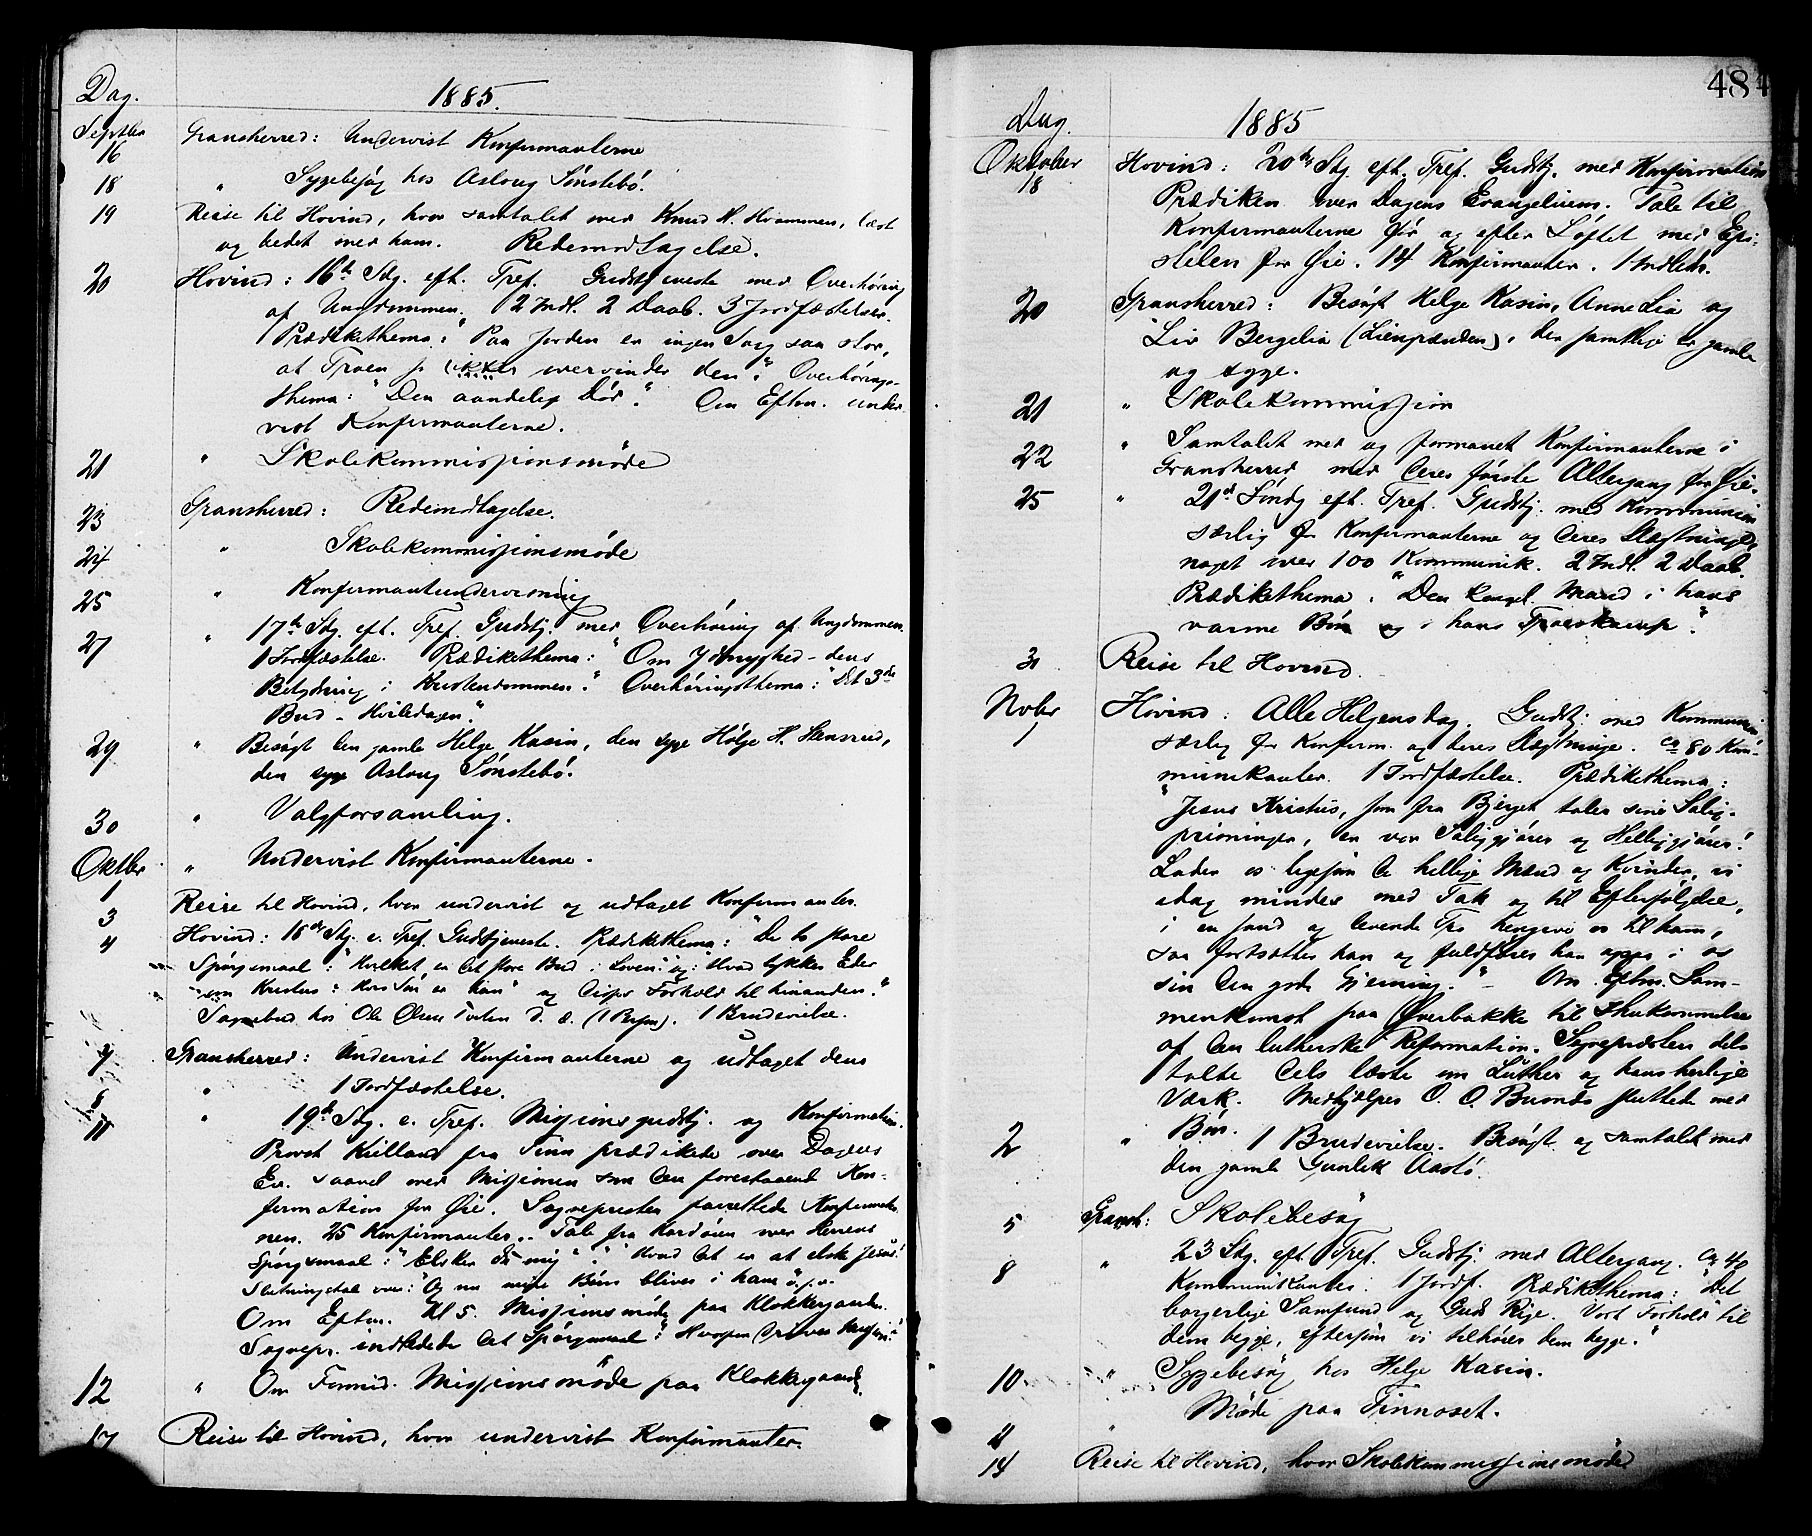 Dag. 1885.
Septbr
16 Gransherred: Undervist Konfirmanterne
18 " Sygebesøg hos Aslaug Sønstebø.
19 Reise til Hovind, hvor samtalet med Knud N. Hvammen, læst
og bedet med ham. Redemodtagelse.
20 Hovind: 16de Sdg. eft. Tref. Gudstjeneste med Overhøring
af Ungdommen. 2 Indl. 2 Daab. 3 Jordfæstelser.
Prædikethema: "Paa Jorden er ingen Sorg saa stor,
at Troen jo ikke overvinder den." Overhørings-
thema: "Den aandelig Død." Om Eftm. under-
vist Konfirmanterne.
21 " Skolekommissionsmøde
23 Gransherred: Redemodtagelse.
24 " Skolekommissionsmøde
25 " Konfirmantundervisning
27 " 17de Sdg. eft. Tref. Gudstj. med Overhøring af Ungdommen.
1 Jordfæstelse. Prædikethema: "Om Ydmyghed - dens
Betydning i Kristendommen." Overhøringsthema: "Det 3die
Bud - Hviledagen."
29 " Besøgt den gamle Helge Kasin, den syge Hølje H. Stensrud,
den syge Aslaug Sønstebø.
30 " Valgforsamling.
Oktbr
1 " Undervist Konfirmanterne.
3 Reise til Hovind, hvor undervist og udtaget Konfirmanter.
4 Hovind: 18de Sdg. e. Tref. Gudstjeneste. Prædikethema: "De to store
Spørgsmaal: "Hvilket er det store Bud i Loven" og: "Hvad tykkes Eder
om Kristus: Hvis Søn er han" og disses Forhold til hinanden."
Sognebud hos Ole Olsen D. æ. (1 Person). 1 Brudevielse.
7 Gransherred: Undervist Konfirmanterne og udtaget dem
8 " 1 Jordfæstelse.
11 " 19de Sdg. e. Tref. Missionsgudstj. og Konfirmation.
Provst Kielland fra Tinn prædikede over Dagens
Ev. saavel med Missionen som den forestaaende Kon-
firmation for Øie. Sognepresten forrettede Konfirmatio-
nen. 25 Konfirmanter. Tale fra Kordøren over Herrens
Spørgsmaal: "Elsker du mig". "Hvad det er at elske Jesus!"
Slutningstale over: "Og nu mine Børn bliver i ham" o.s.v.
Om Eftm. Kl 5. Missionsmøde paa Klokkergaarden.
Sognepr. indledede det Spørgsmaal: "Hvorfor driver Mission?"
12 " Om Formid. Missionsmøde paa Klokkergaarden.
17 Reise til Hovind, hvor undervist Konfirmanter.
484
Dag. 1885
Oktober
18 Hovind: 20de Sdg. eft. Tref. Gudstj. med Konfirmation
Prædiken over Dagens Evangelium. Tale til
Konfirmanterne før og efter Løftet med Epi-
stelen for Øie. 14 Konfirmanter. 1 Indled.
20 Gransherred: Besøgt Helge Kasin, Anne Lia og
Liv Bergelia (Liengrænden), der samtlige er gamle
og syge.
21 " Skolekommission
22 " Samtalet med og formanet Konfirmanterne i
Gransherred med deres første Altergang for Øie.
25 " 21de Søndg eft. Tref. Gudstj. med Kommunion
særlig for Konfirmanterne og deres Slægtninge,
noget over 100 Kommunik. 2 Indl. 2 Daab.
Prædikethema: "Den kongel. Mand i hans
varme Bøn og i hans Troeskamp."
31 Reise til Hovind.
Novbr
1 Hovind: Alle Helgensdag. Gudstj. med Kommunion
særlig for Konfirm. og deres Slægtninge. ca 80 Kom-
munikanter. 1 Jordfæstelse. Prædikethema:
"Jesus Kristus, som fra Bjerget taler sine Salig-
prisninger, er vor Saliggjører og Helliggjører!
Lader os ligesom de hellige Mænd og Kvinder, vi
idag mindes med Tak og til Efterfølgelse,
i en sand og levende Tro hengive os til ham,
saa fortsætter han og fuldfører han ogsaa i os
sin den gode Gjerning." - Om Eftm. Sam-
menkomst paa Øverbakke til Ihukommelse
af den lutherske Reformation. Sognepresten dels
talte dels læste om Luther og hans herlige
Værk. Medhjælper O. O. Busnes sluttede med
Bøn.
2 " 1 Brudevielse. Besøgt og samtalet med
den gamle Gunlek Aastø.
5 Gransh: Skolebesøg
8 " 23 Sdg. eft. Tref. Gudstj. med Altergang. ca 40
Kommunikanter. 1 Jordf. Prædikethema: "Det
borgerlige Samfund og Guds Rige. Vort Forhold til
dem begge, eftersom vi tilhører dem begge."
10 " Sygebesøg hos Helge Kasin.
11 " Møde paa Tinnoset.
14 Reise til Hovind, hvor Skolekommissionsmøde